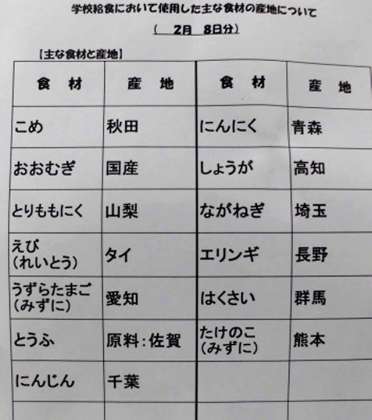 学校給食において使用した主な食材の産地について
( 2月 8日分)
【主な食材と産地】
食 材 産 地 食 材 産 地
こめ 秋田 にんにく 青森
おおむぎ 国産 しょうが 高知
とりももにく 山梨 ながねぎ 埼玉
えび
(れいとう) タイ エリンギ 長野
うずらたまご
(みずに) 愛知 はくさい 群馬
とうふ 原料:佐賀 たけのこ
(みずに) 熊本
にんじん 千葉